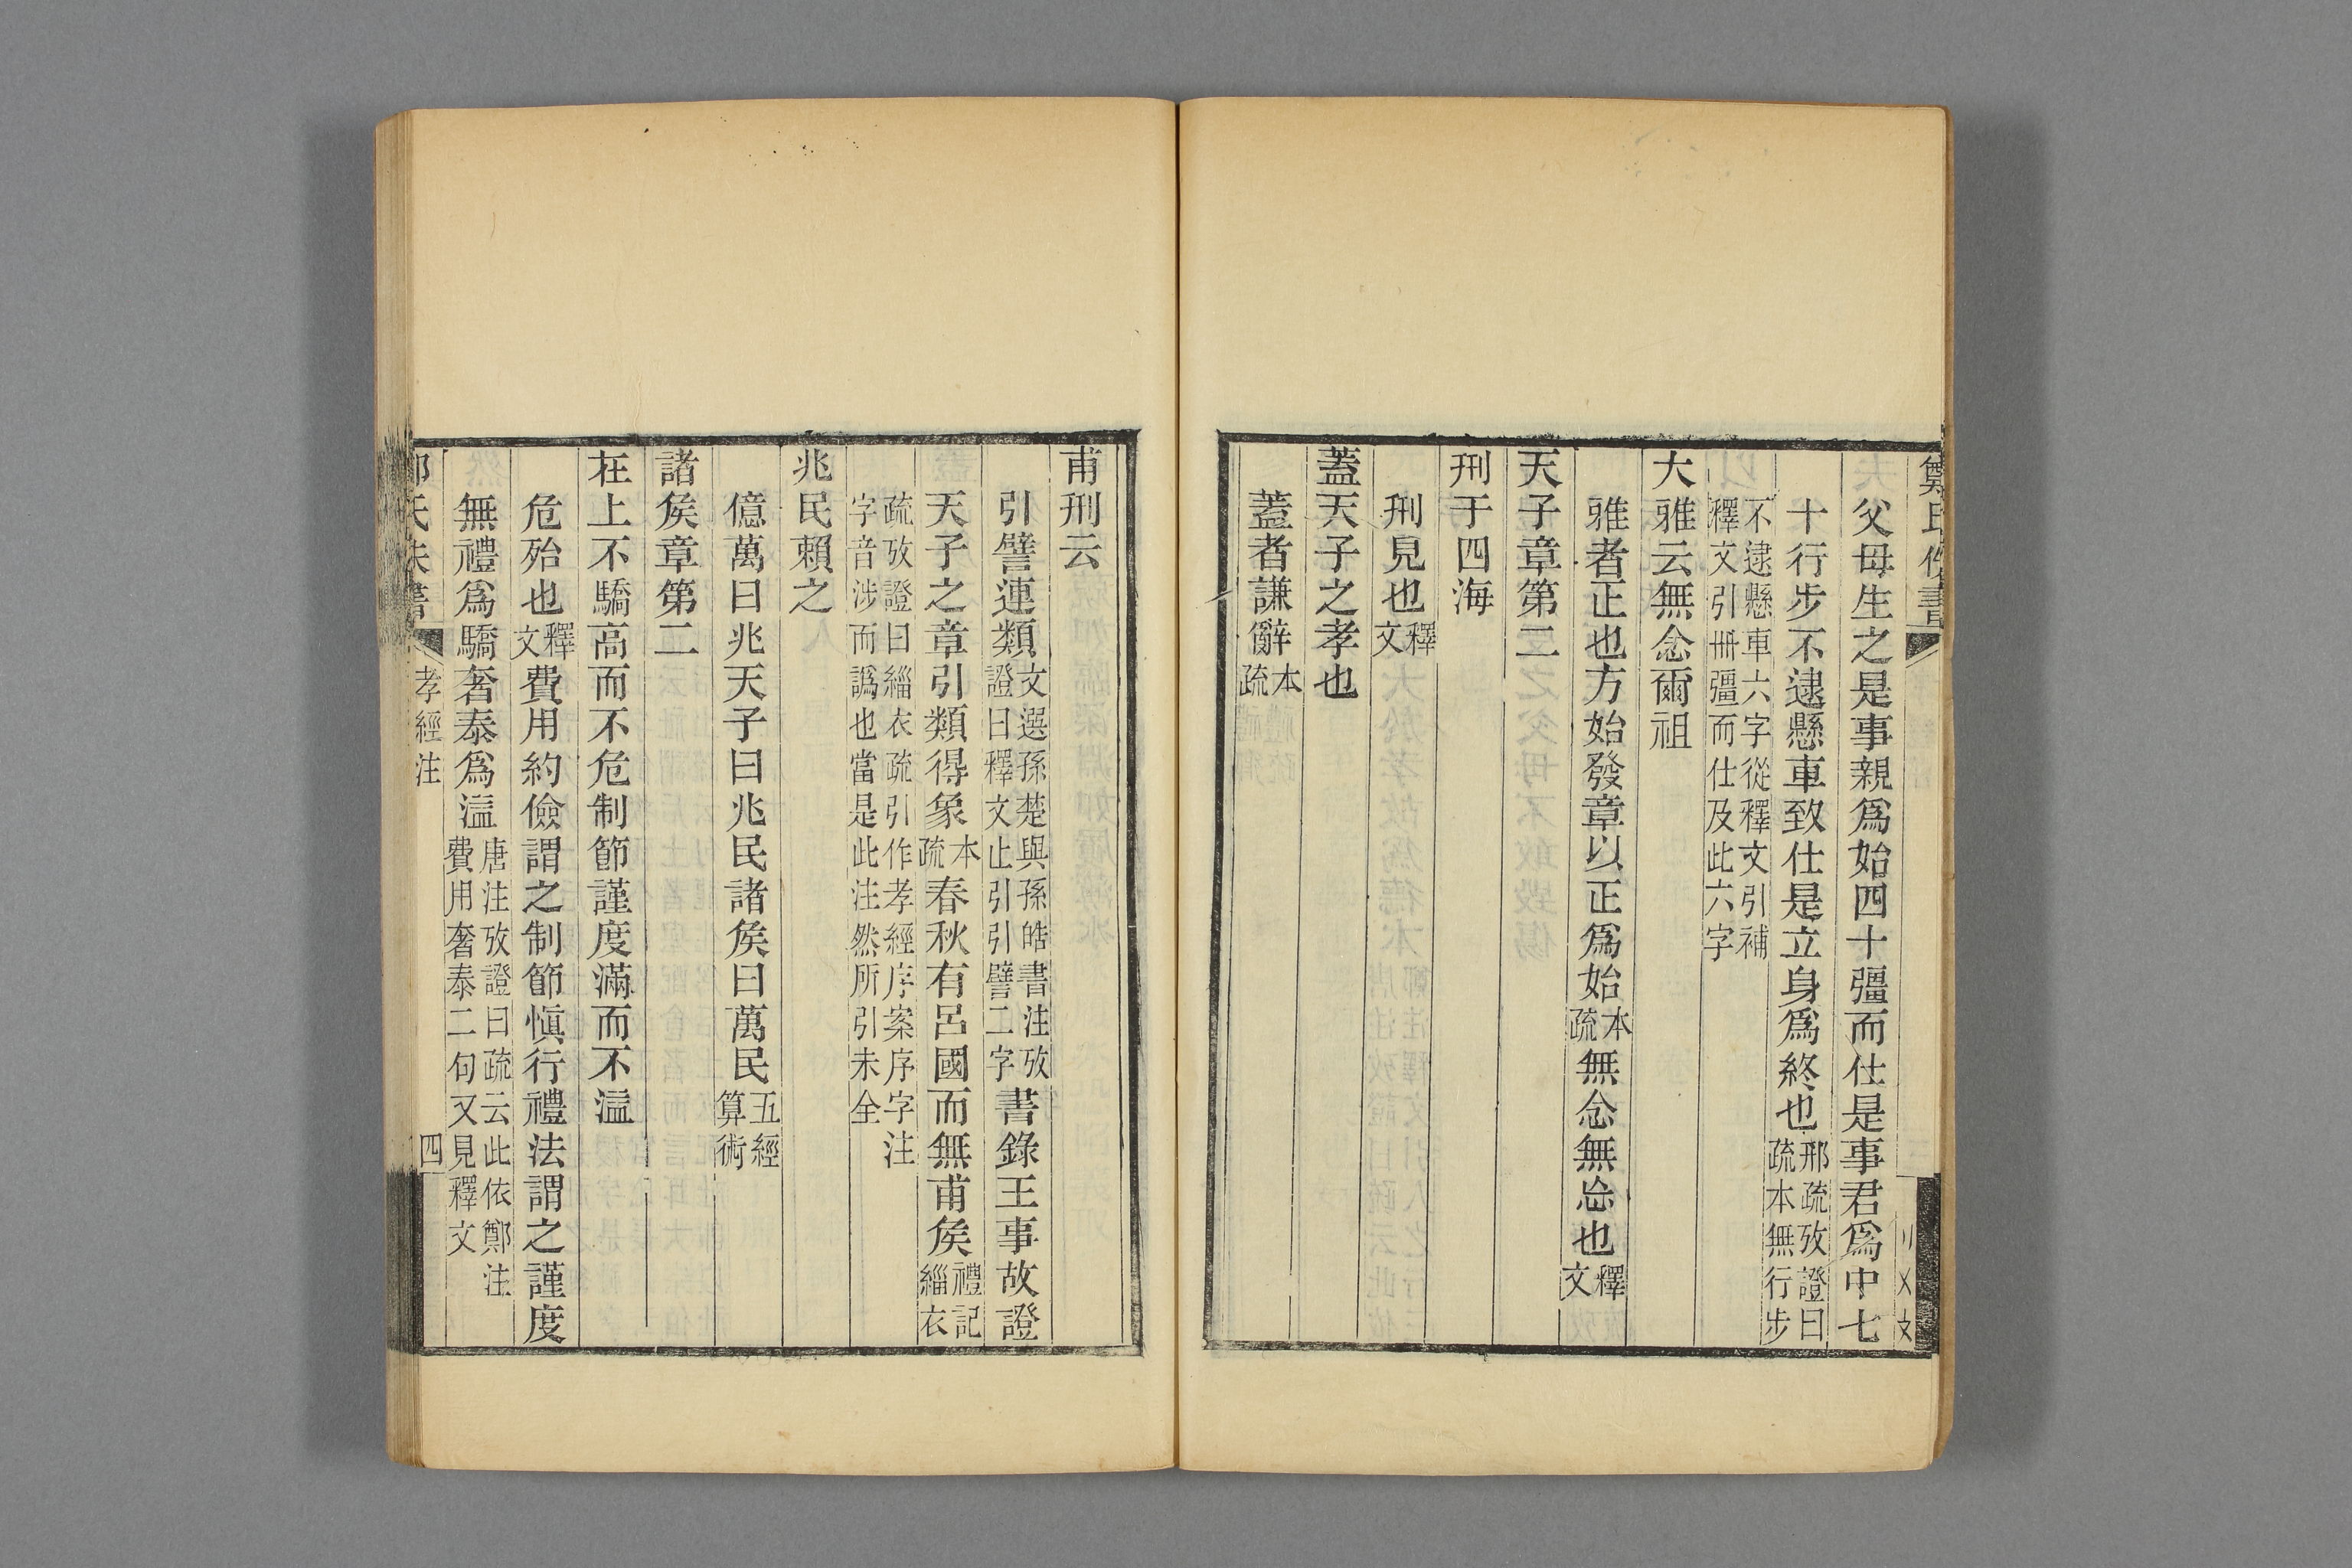 鄭氏佚書
父母生之是事親爲始四十彊而仕是事君爲中七
十行步不逮懸車致仕是立身爲終也邢疏攷證曰疏本無行步
不逮懸車六字從釋文引補釋文引冊彊而仕及此六字
大雅云無念爾祖
雅者正也方始發章以正爲始本疏無念無忘也釋文
天子章第二
刑于四海
刑見也釋文
蓋天子之孝也
蓋者謙辭本疏
甫刑云
引譬連類文選孫楚與孫皓書注攷證曰釋文止引引譬二字書錄王事故證
天子之章引類得象本疏春秋有呂國而無甫矦禮記緇衣
疏攷證曰緇衣疏引作孝經序案序字注字音涉而譌也當是此注然所引未全
兆民賴之
億萬曰兆天子曰兆民諸矦曰萬民五經算術
諸矦章第二
在上不驕高而不危制節謹度滿而不溢
危殆也釋文費用約儉謂之制節愼行禮法謂之謹度
無禮爲驕奢泰爲溢唐注攷證曰疏云此依鄭注費用奢泰二句又見釋文
鄭氏佚書 孝經注 四